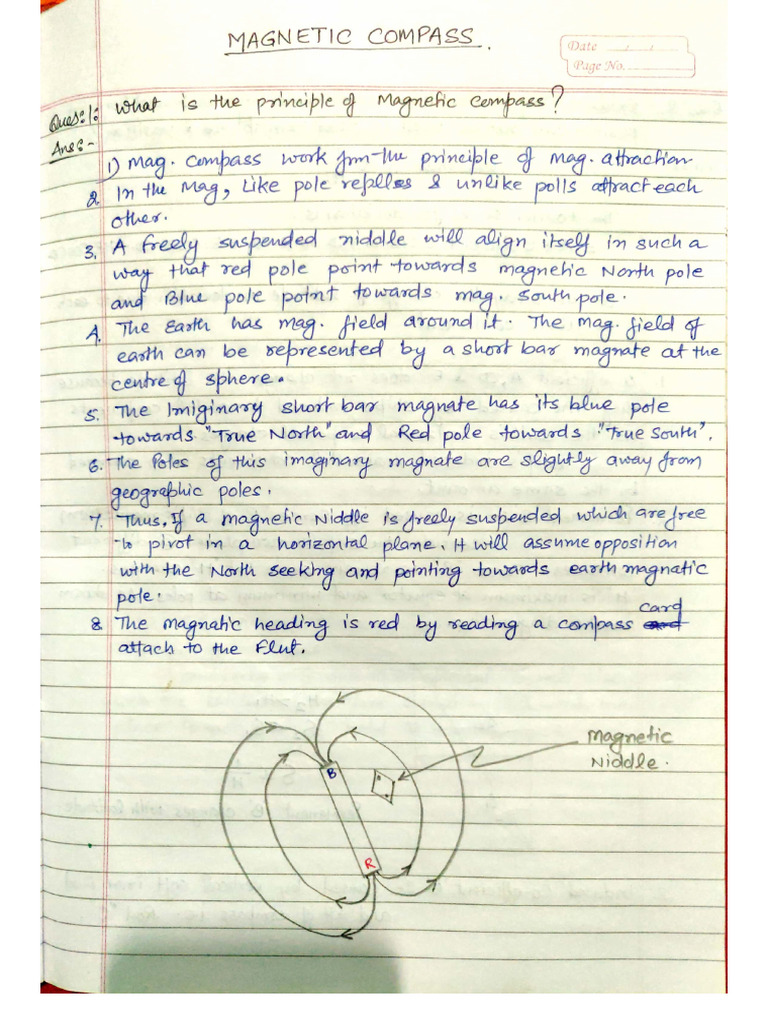 MAGNETIC COMPASS.
Date ___/___/___
Page No. ______
Ques:1: What is the principle of Magnetic Compass?
Ans:-
1) Mag. Compass work frm the principle of mag. attraction
2. In the Mag, Like pole replles & unlike polls attract each
other.
3. A freely suspended niddle will align itself in such a
way that red pole point towards magnetic North pole
and Blue pole point towards mag. South pole.
4. The Earth has mag. field around it. The mag. field of
earth can be represented by a short bar magnate at the
centre of sphere.
5. The Imiginary short bar magnate has its blue pole
towards "True North" and Red pole towards "True South".
6. The Poles of this imaginary magnate are slightly away from
geographic poles.
7. Thus, If a magnetic Niddle is frealy suspended which are free
to pivot in a horizontal plane. It will assume opposition
with the North seeking and pointing towards earth magnatic
pole.
8 The magnatic heading is red by reading a compass card
attach to the Flut.
Magnetic
Niddle.
B
R